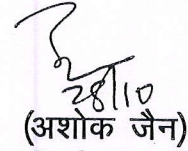 28/10
(अशोक जैन)